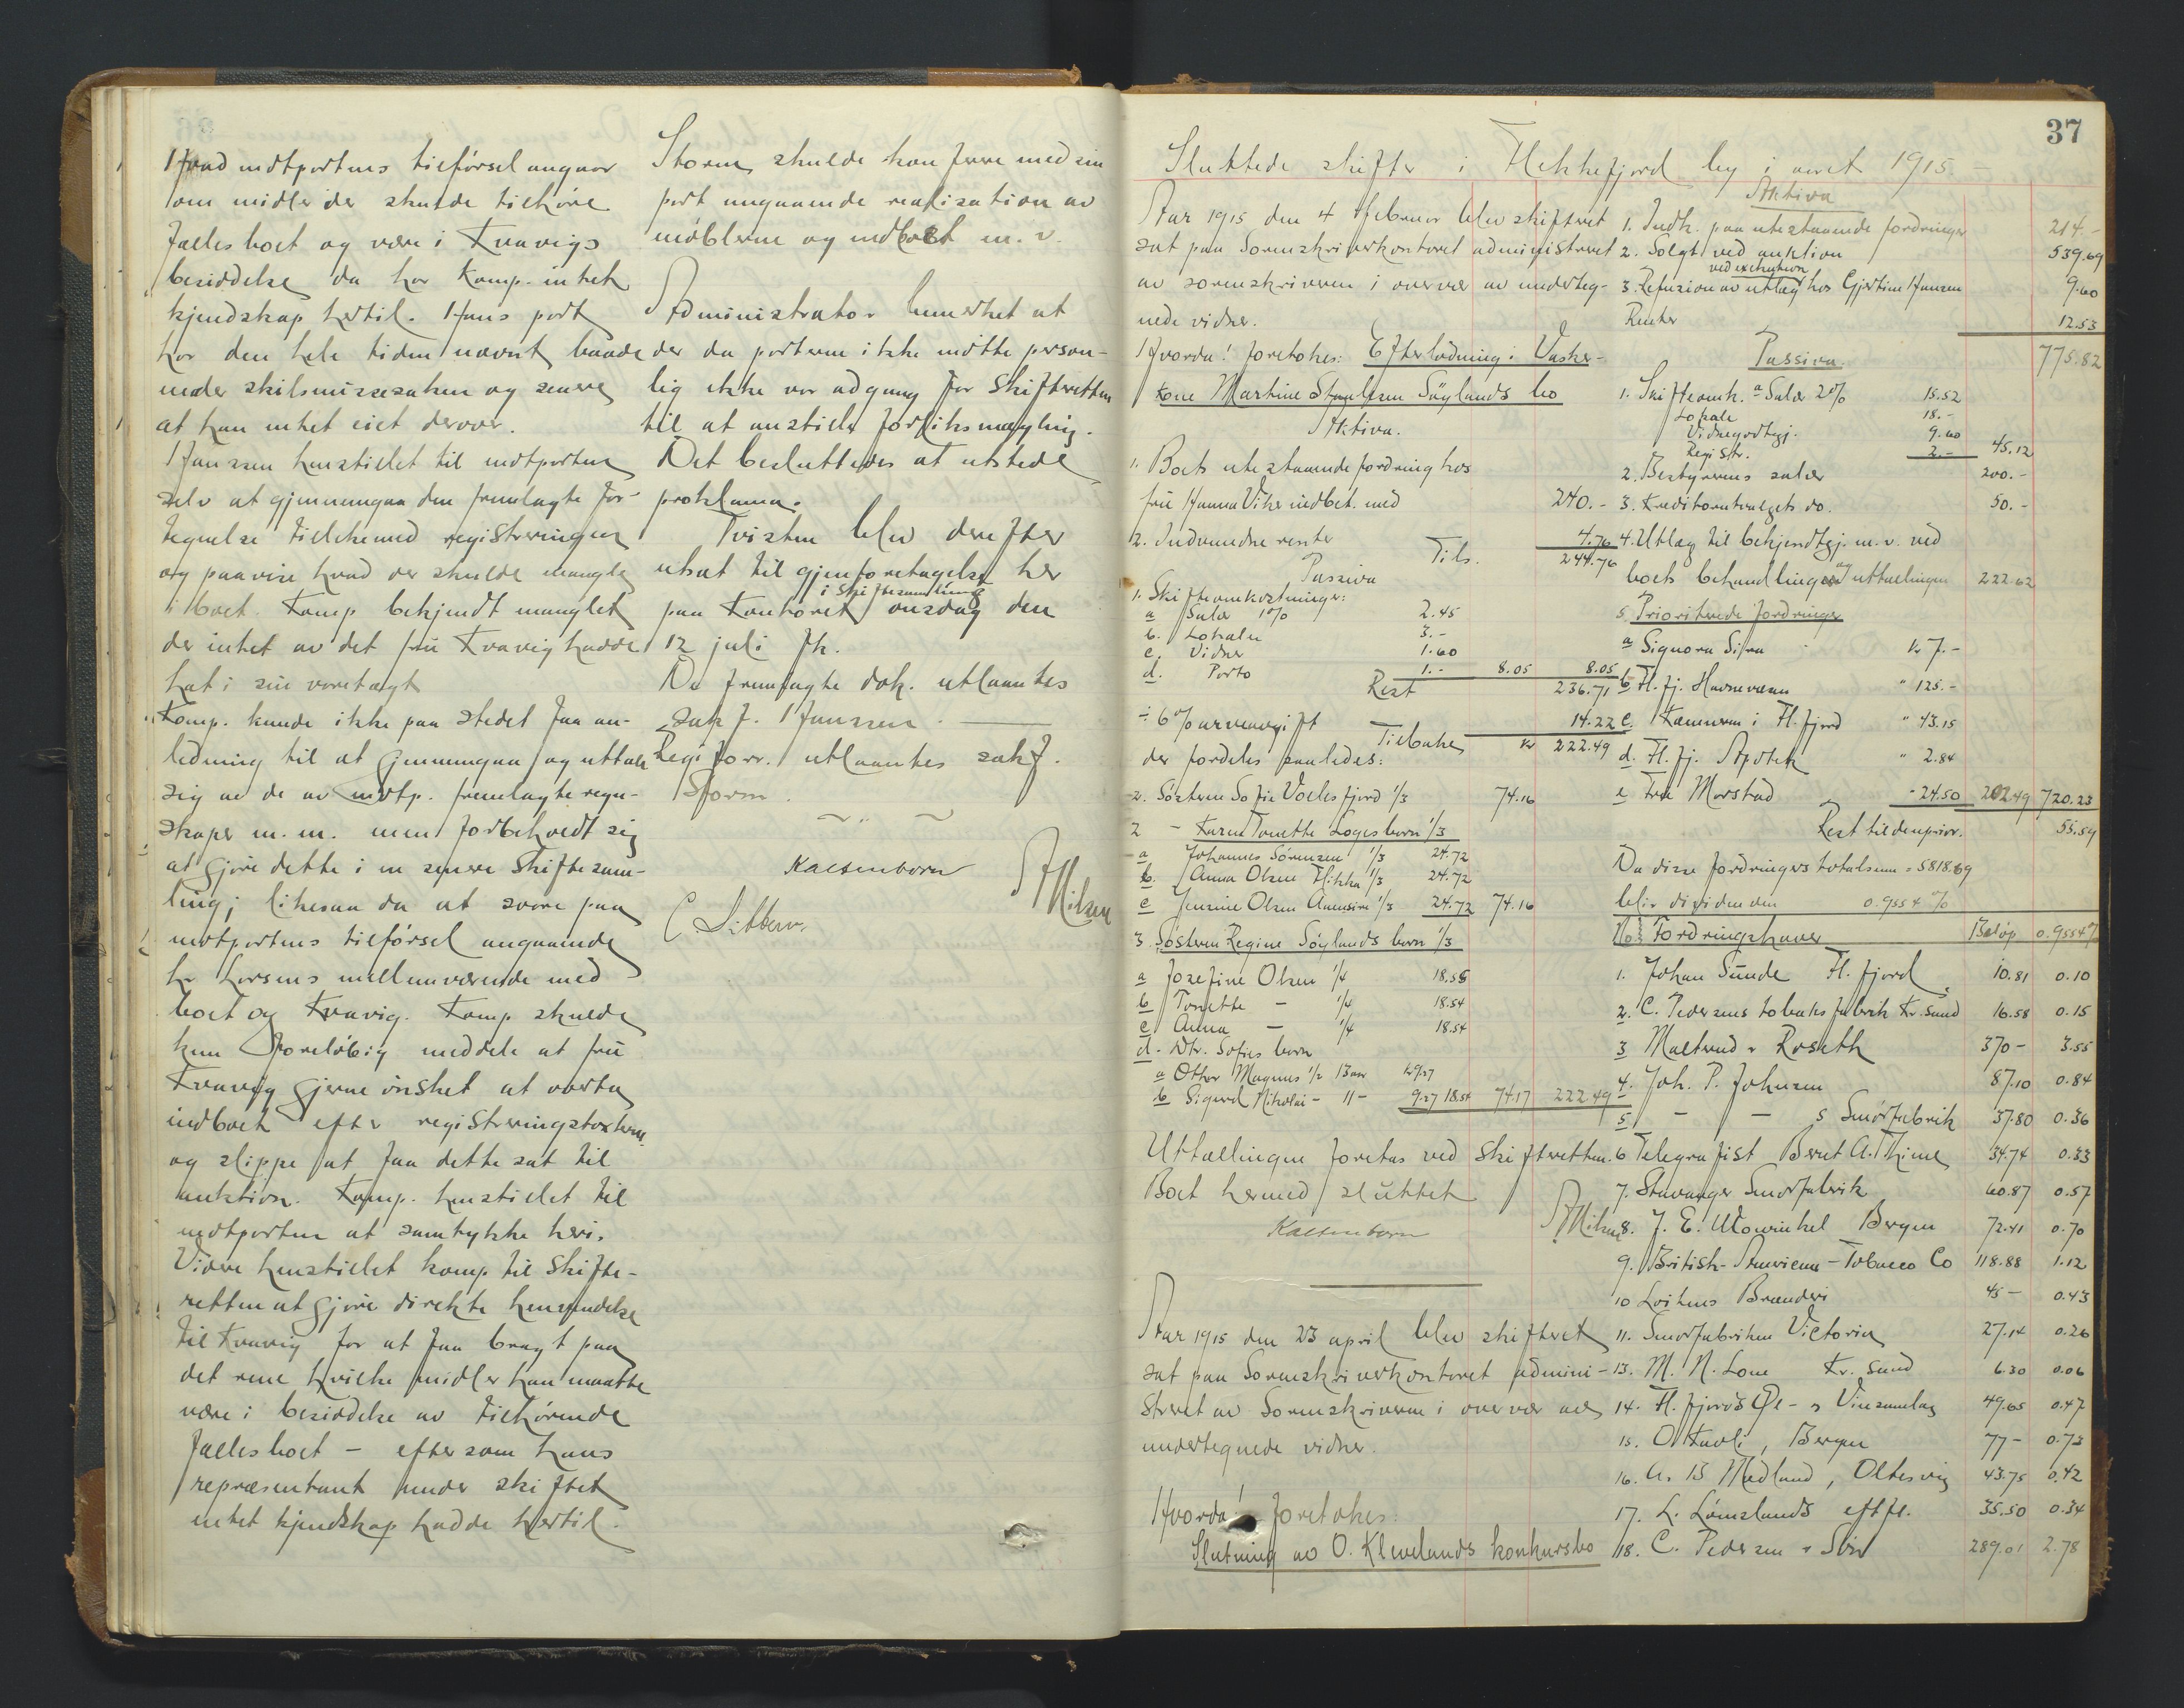 Hvad motpartens tilførsel angaar
om midler der skulde tilhøre
fællesboet og være i Kvavigs
besiddelse da har komp. intet
kjendskap hertil. Hans part
har den hele tiden nævnt baade
under skilsmissesaken og senere
at han intet eiet derover.
Hanssen henstillet til motparten
selv at gjennemgaa den fremlagte for-
tegnelse tillikemed registreringen
og paavise hvad der skulde mangle
i boet. Komp bekjendt manglet
der intet av det fru Kvavig hadde
hat i sin varetægt
Komp. kunde ikke paa stedet faa an-
ledning til at gjennemgaa og uttale
sig av de av motp. fremlagte regn-
skaper m. m. men forbeholdt sig
at gjøre dette i en senere skiftesam-
ling; likesaa da at svare paa
motpartens tilførsel angaaende
hr Larsens mellemværende med
boet og Kvavig. Komp skulde
kun foreløbig meddele at fru
Kvavig gjerne ønsket at overta
indboet efter registreringstaksten
og slippe at faa dette sat til
auktion. Komp. henstillet til
motparten at samtykke heri.
Videre henstillet komp til skifte-
retten at gjøre direkte henvendelse
til Kvavig for at faa bragt paa
det rene hvilke midler han maatte
være i besiddelse av tilhørende
fællesboet – eftersom hans
repræsentant under skiftet
intet kjendskap hadde hertil.
Storm skulde konferere med sin
part angaaende realisation av
møblerne og indboet m. v.
Administrator bemerket at
der da parterne ikke møtte person-
lig ikke var adgang for skifteretten
til at anstille forliksmægling.
Det besluttedes at utstede
proklama.
Tvisten blev derefter
utsat til gjenforetagelse her
i skiftesamling
paa kontoret onsdag den
12 juli fk.
De fremlagte dok. utlaantes
sakf. Hanssen.
Regiforr. utlaantes sakf.
Storm.
Kaltenborn
A Nilsen
37
Sluttede skifter i Flekkefjord by i aaret 1915. –
Aar 1915 den 4 februar blev skifteret
sat paa Sorenskriverkontoret administreret
av sorenskriveren i overvær av underteg-
nede vidner.
Hvorda! foretokes: Efterlodning i Vasker-
kone Martine Søylands bo
Aktiva.
1. Boets utestaaende fordring hos
fru Hanna Vike indbet. med 240.-
2. Indvundne renter 4.76
Tils. 244.76
Passiva
1. Skifteomkostninger:
a Salær 1% 2.45
b. Lokale 3.-
c. Vidner 1.60
d. Porto 1.- 8.05 8.05
Rest 236.71
÷ 6% arveavgift 14.22
Tilbake kr 222.49
der fordeles saaledes:
2. Søsteren Sofie Voelesfjord 1/3 74.16
2 – Karen Tonette Loges barn 1/3
a Johannes Sørensen 1/3 24.72
b. Anna Olsen Flikka 1/3 24.72
c Jensine Olsen 1/3 24.72 74.16
3. Søsteren Regine Søylands barn 1/3
a Josefine Olsen 1/4 18.55
b Tonette – 1/4 18.54
c Anna – 1/4 18.54
d. Dtr. Sofies barn
a Othar Magnus 1/2 9.27
b Sigurd Nikolai – 11 – 9.27 18.54 74.17 222.49
Uttællingen foretas ved skifteretten.
Boet hermed sluttet
Kaltenborn
A Nilsen
Aar 1915 den 23 april blev skifteret
sat paa Sorenskriverkontoret admini-
streret av Sorenskriveren i overvær av
undertegnede vidner.
Hvorda! foretokes:
Slutning av O. Klevelands konkursbo
Aktiva
1. Indk. paa utestaaende fordringer 214.-
2. Solgt ved auktion 539.69
ved exekution
3. Refusion av utlæg hos Gjertine Hansen 9.60
Renter 12.53
775.82
Passiva.
1. Skifteomk. a Salær 2% 15.52
Lokale 18.-
Vidnegodtgj. 9.60
Registr. 2.- 45.12
2. Bestyrerens salær 200.-
3. Kreditorutvalgets do. 50.-
4. Utlæg til bekjendtgj. m. v. ved
boets behandling og uttællingen 222.62
5. Prioriterede fordringer
a Signora Sira kr 7.-
b Fl. fj. Havnevæsen " 125.-
c. Kæmneren i Fl. fjord " 43.15
d. Fl. fj. Apotek " 2.84
e Fru Marstad - 24.50 202.49 720.23
Rest til denprior. 55.59
Da disse fordringers totalsum = 5818.69
blir dividenden 0.9554 %
No. Fordringshaver Beløp 0.9554%
1. Johan Sunde Fl. fjord 10.81 0.10
2. C. Pedersens tobaksfabrik Kr. sand 16.58 0.15
3 Malterud & Roseth 370- 3.55
4. Joh. P. Johnsen 87.10 0.84
5 – – s Smørfabrik 37.80 0.36
6 Telegrafist Beret A. Thime 34.74 0.33
7. Stavanger Smørfabrik 60.87 0.57
8. J. E. Mowinkel Bergen 72.41 0.70
9. British-American-Tobacco Co 118.88 1.12
10 Loitens Brænderi 45 – 0.43
11. Smørfabriken Victoria 27.14 0.26
13. M. N. Lome Kr. sand 6.30 0.06
14. Fl. fjords Øl- & Vinsamlag 49.65 0.47
15. O Kavli, Bergen 77 – 0.73
16. A. B Midland, Oltesvig 43.75 0.42
17. L. Lømslands eftf. 35.50 0.34
18. C. Pedersen & Søn 289.01 2.78